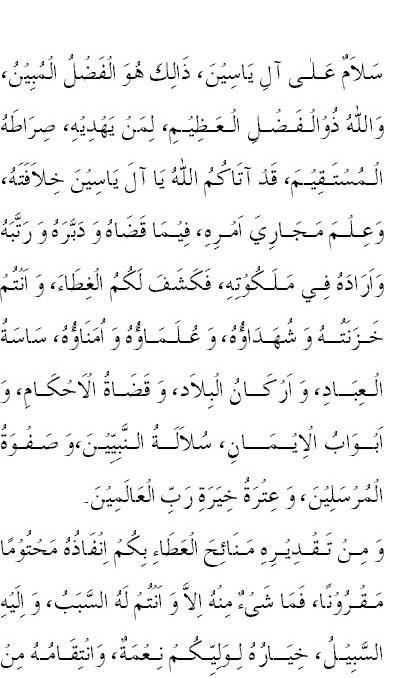 سَلَامٌ عَلٰى آلِ يَاسِيْنَ، ذَالِكَ هُوَ الْفَضْلُ الْمُبِيْنُ،
وَاللهُ ذُوْالْفَضْلِ الْعَظِيْمِ، لِمَنْ يَهْدِيْهِ، صِرَاطَهُ
الْمُسْتَقِيْمَ، قَدْ آتَاكُمُ اللهُ يَا آلَ يَاسِيْنَ خِلَافَتَهُ،
وَعِلْمَ مَجَارِيَ اَمْرِهِ، فِيْمَا قَضَاهُ وَ دَبَّرَهُ وَ رَتَّبَهُ
وَاَرَادَهُ فِي مَلَكُوْتِهِ، فَكَشَفَ لَكُمُ الْغِطَاءَ، وَ اَنْتُمْ
خَزَنَتُهُ وَ شُهَدَاؤُهُ، وَ عُلَمَاؤُهُ وَ اُمَنَاؤُهُ، سَاسَةُ
الْعِبَادِ، وَ اَرْكَانُ الْبِلَادِ، وَ قَضَاةُ الْاَحْكَامِ، وَ
اَبْوَابُ الْاِيْمَانِ، سُلَالَةُ النَّبِيِّيْنَ،وَ صَفْوَةُ
الْمُرْسَلِيْنَ، وَ عِتْرَةُ خِيَرَةِ رَبِّ الْعَالَمِيْنَ۔
وَ مِنْ تَقْدِيْرِهِ مَنَائِحَ الْعَطَاءِ بِكُمْ اِنْفَاذُهُ مَحْتُوْمًا
مَقْرُوْنًا، فَمَا شَىْءٌ مِنْهُ اِلاَّ وَ اَنْتُمْ لَهُ السَّبَبُ، وَ اِلَيْهِ
السَّبِيْلُ، خِيَارُهُ لِوَلِيِّكُمْ نِعْمَةٌ، وَانْتِقَامُهُ مِنْ